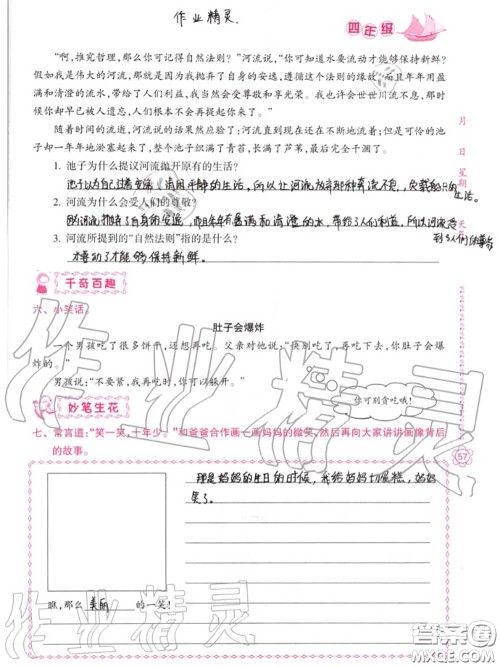 作业精灵.
四年级
“啊,推究哲理,那么你可记得自然法则?”河流说,“你可知道水要流动才能够保持新鲜?
假如我是伟大的河流,那就是因为我抛弃了自身的安逸,遵循这个法则的缘故,而且年年用盈
满和清澄的流水,带给了人们利益,我当然会受尊敬和享光荣。我也许会世世川流不息,那时
候你却早已被人遗忘,人们根本不会再提起你来了。”
随着时间的流逝,河流说的话果然应验了。河流直到现在还在不断地流着;但是可怜的池
子却一年年地淤塞起来了,整个池子织满了青苔,长满了芦苇,最后完全干涸了。
1. 池子为什么提议河流抛开原有的生活?
2. 河流为什么会受人们的尊敬?
因河流抛弃了自身的安逸,而且年年有盈满和清澄的水,带给了人们利益,所以河流受
到人们的尊敬
3. 河流所提到的“自然法则”指的是什么?
水要动了才能够保持新鲜.
月
日
星期
天气
千奇百趣
六、小笑话。
肚子会爆炸
一个男孩吃了很多饼干,还想再吃。父亲对他说:“孩别吃了,再吃下去,你肚子会爆
炸的。”
男孩说:“不要紧,我再吃时,你可以躲开。”
你可别贪吃哦!
妙笔生花
七、常言道:“笑一笑,十年少。”和爸爸合作画一画妈妈的微笑,然后再向大家讲讲画像背后
的故事。
57
那是妈妈的生日的时候,我给妈妈切蛋糕,妈妈
笑了。
瞧,那么 美丽 的一笑!
作业精灵
作业精灵
答案圈
MXQE.COM